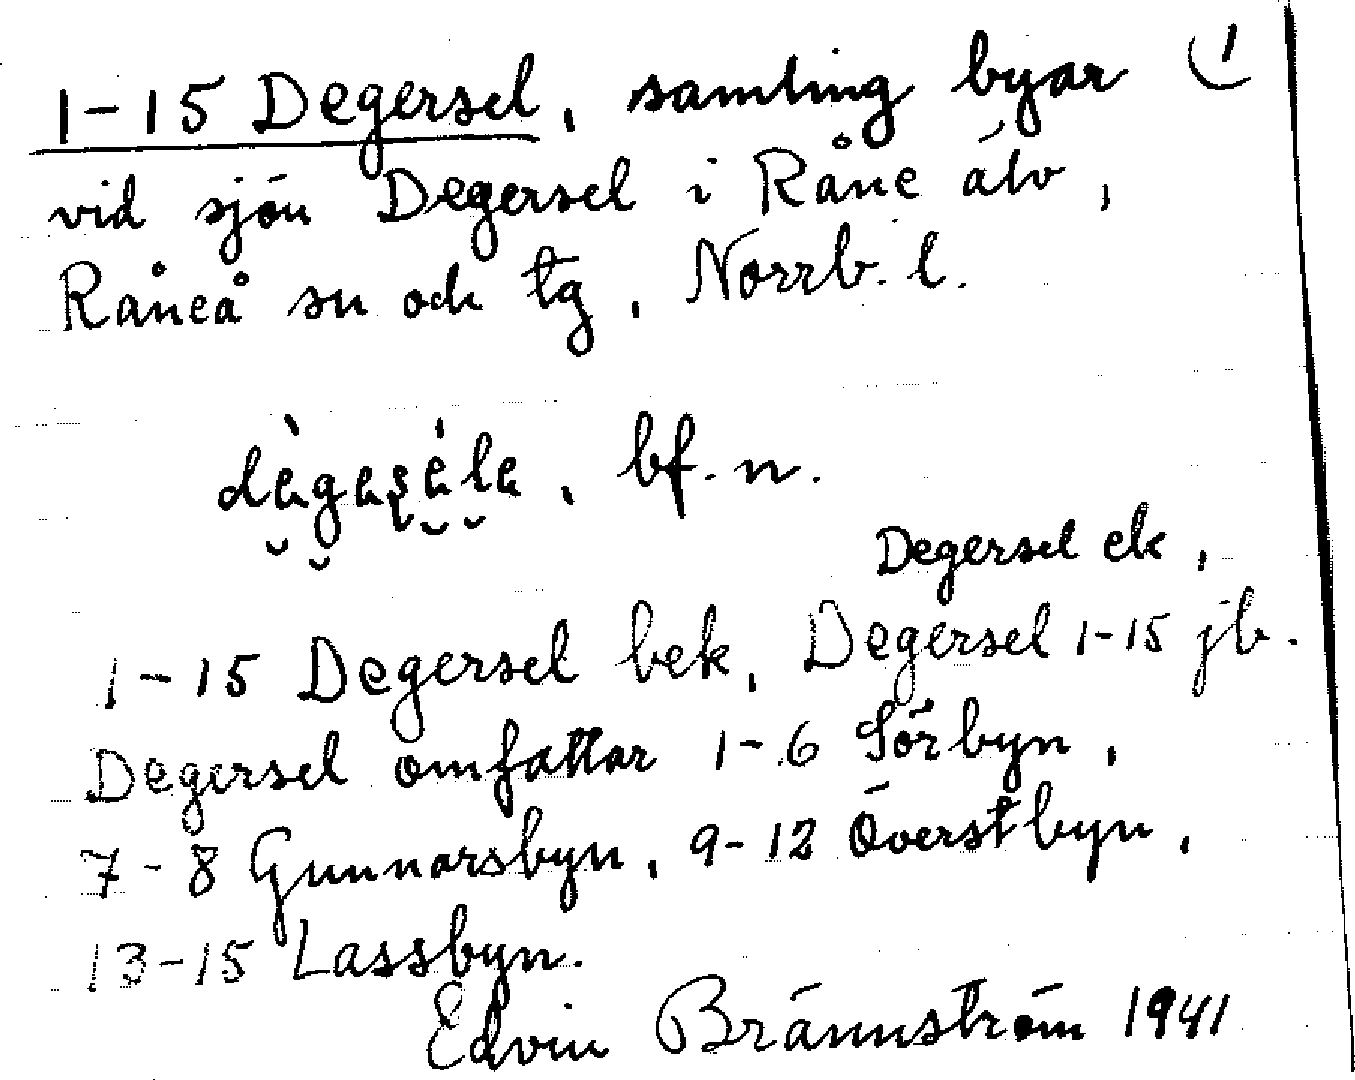 1-15 Degersel, samling byar 1
vid sjön Degersel i Råne älv,
Råneå sn och tg, Norrb. l.
bf. n.
Degersel ek,
1-15 Degersel bek, Degersel 1-15 jb.
Degersel omfattar 1-6 Sörbyn,
7-8 Gunnarsbyn, 9-12 Överstbyn,
13-15 Lassbyn.
Edvin Brännström 1941